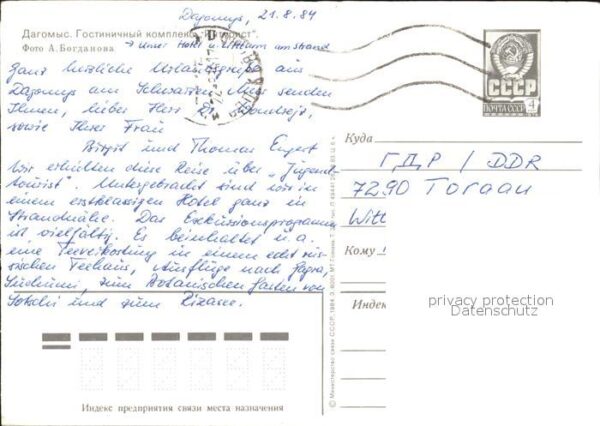 Dagomys, 21.8.84
Дагомыс. Гостиничный комплекс "Интурист".
Фото А. Богданова
→ unser Hotel u. am Strand
Ganz herzliche Urlaubsgrüße aus
Dagomys am Schwarzen Meer senden
Ihnen, lieber Herr
sowie Ihrer Frau
Birgit und Thomas
Wir erhielten diese Reise über "Jugend-
tourist". Untergebracht sind wir in
einem erstklassigen Hotel ganz in
Strandnähe. Das Exkursionsprogramm
ist vielfältig. Es beinhaltet u. a.
eine Teeverkostung in einem echt rus-
sischen Teehaus, Ausflüge nach Gagra,
Suchumi, zum Botanischen Garten von
Sotschi und zum Rizasee.
СССР
ПОЧТА СССР
4
Куда
ГДР / DDR
7290 Torgau
Witt
Кому
Индекс
privacy protection
Datenschutz
Индекс предприятия связи места назначения
© Министерство связи СССР, 1984.